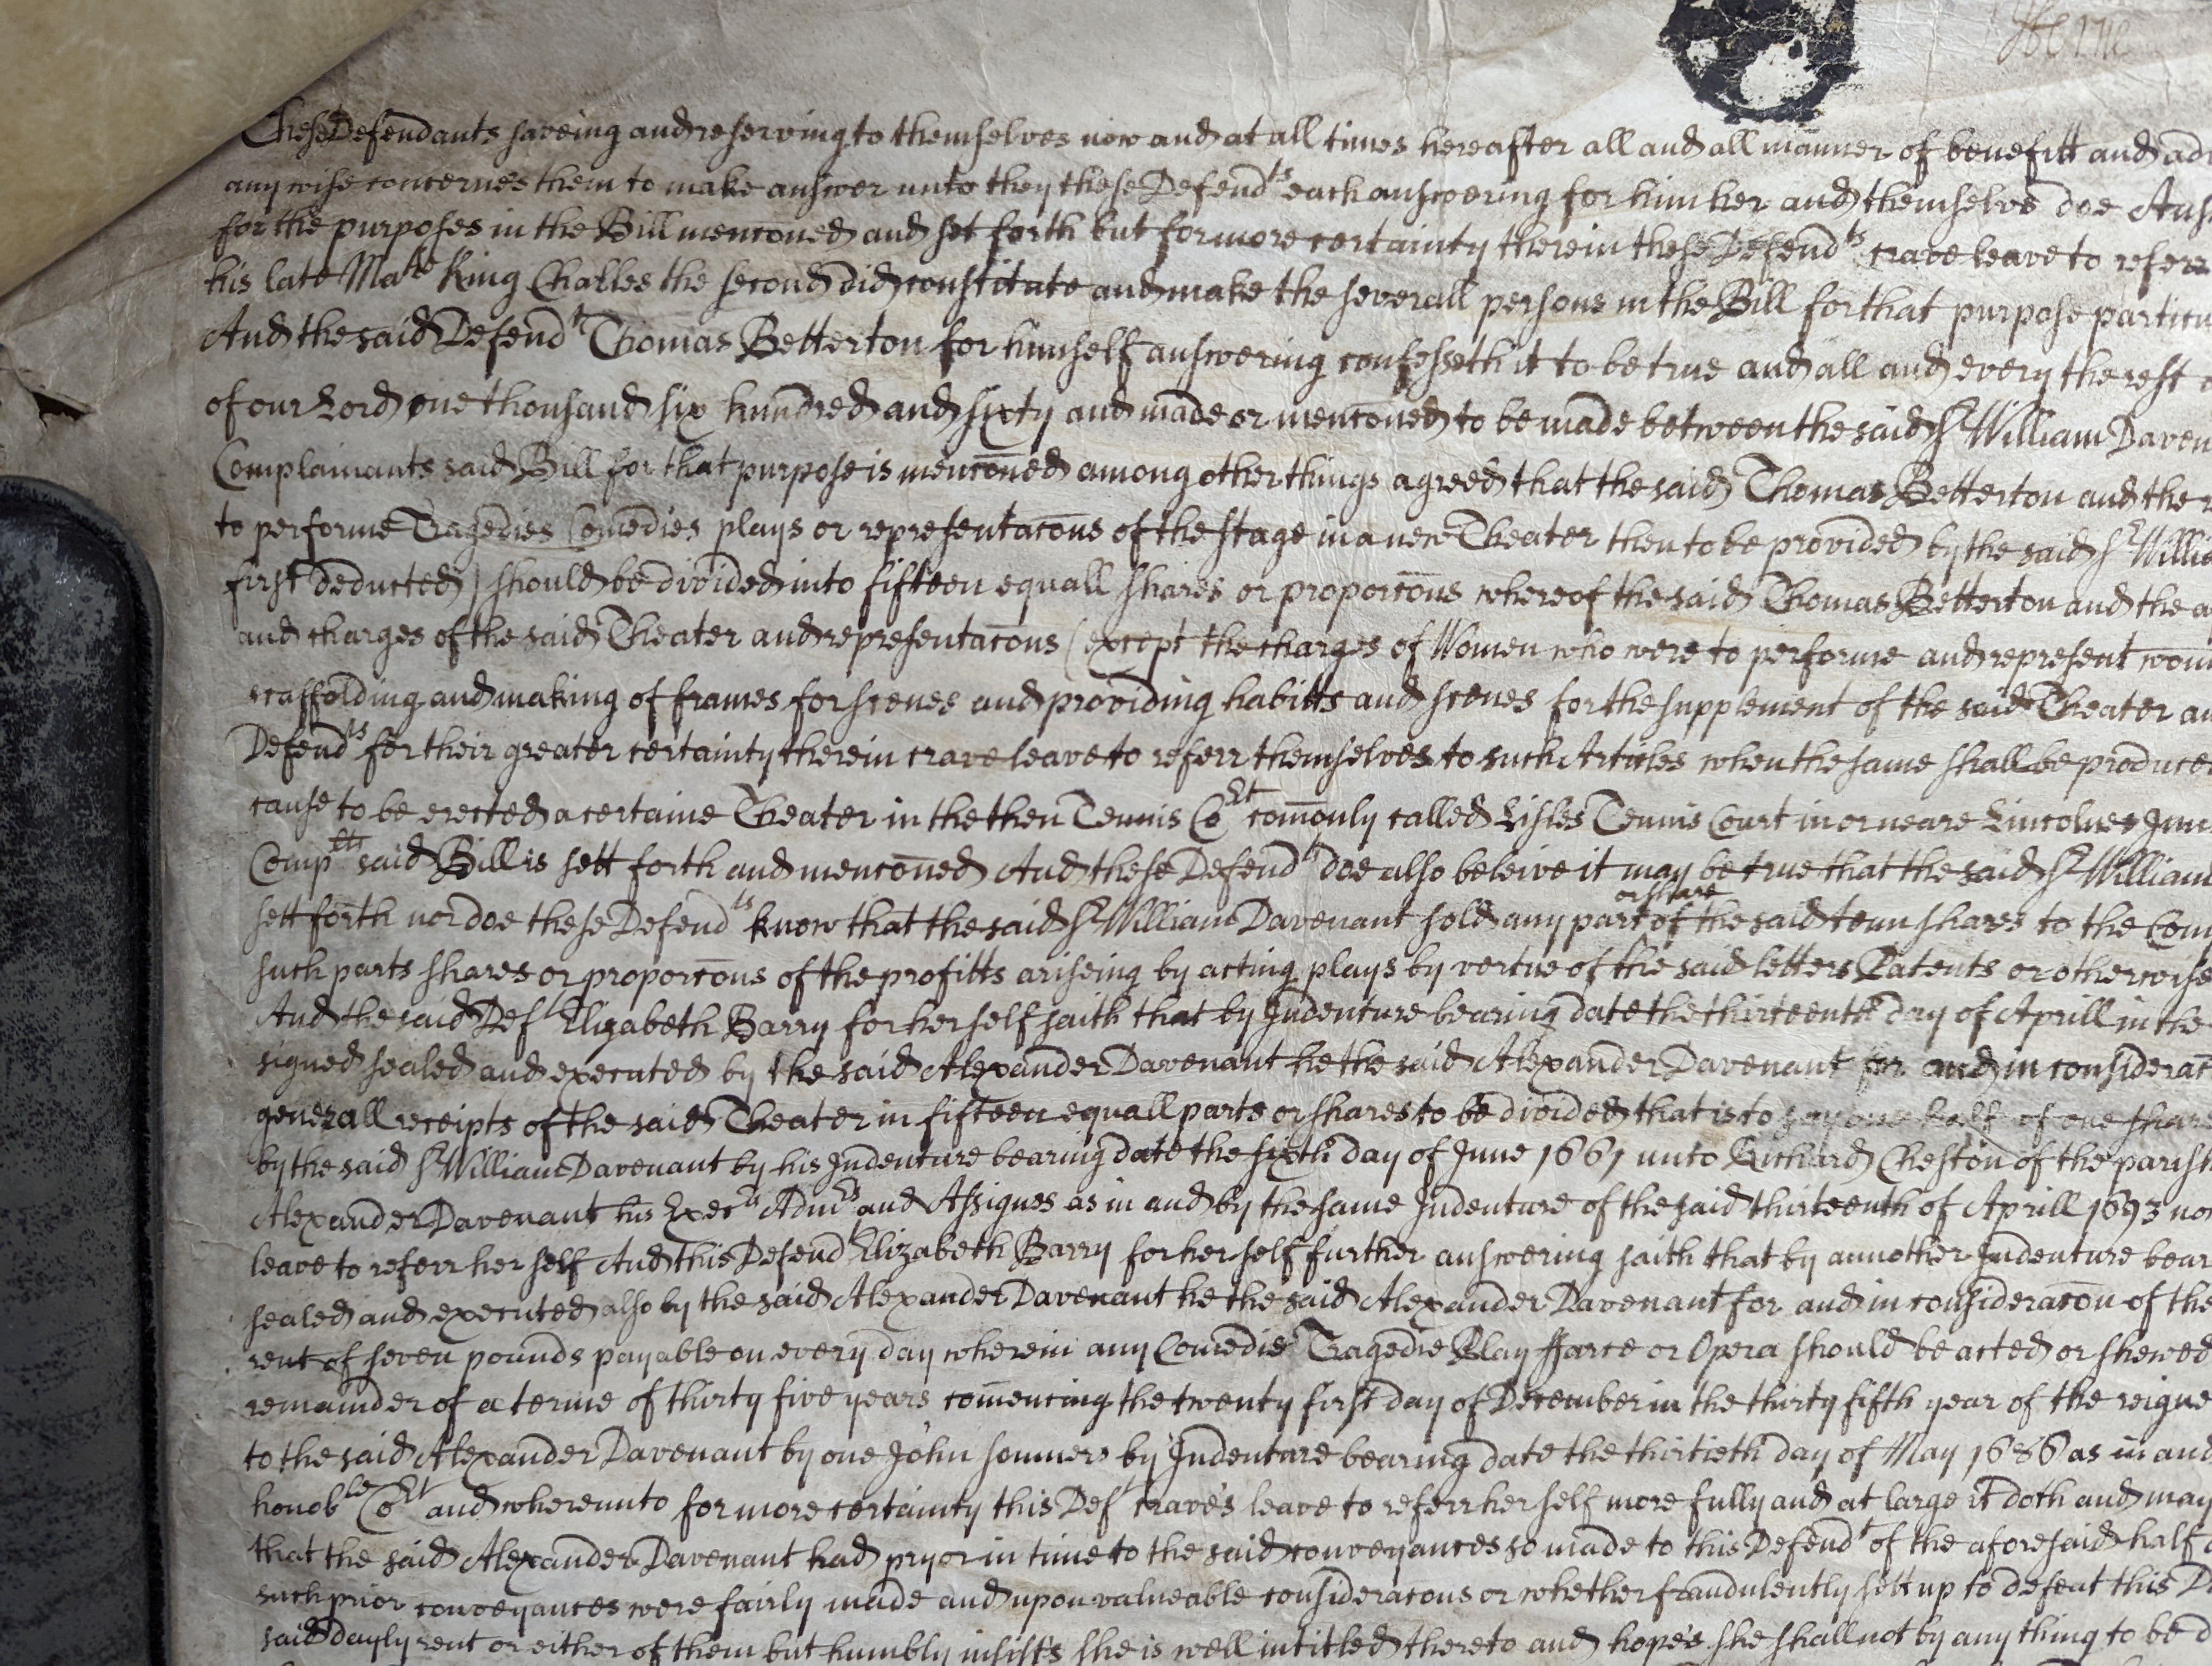 These Defendants saveing and reserving to themselves now and at all times hereafter all and all manner of benefitt and
any wise concernes them to make answer unto they these Defend^ts each answering for him her and themselves doe
for the purposes in the Bill menc̄oned and set forth but for more certainty therein these Defend^ts crave leave to referr
his late Ma^tie King Charles the second did constitute and make the severall persons in the Bill for that purpose
And the said Defend^t Thomas Betterton for himself answering confesseth it to be true and all and every the rest
of our Lord one thousand six hundred and sixty and made or menc̄oned to be made between the said S^r William
Complainants said Bill for that purpose is menc̄oned among other things agreed that the said Thomas Betterton and the
to performe Tragedies Comedies plays or representac̄ons of the stage in a new Theater then to be provided by the said S^r
first deducted) should be divided into fifteen equall shares or proporc̄ons whereof the said Thomas Betterton and the
and charges of the said Theater and representac̄ons (except the charges of Women who were to performe and represent
scaffolding and making of frames for scenes and providing habitts and scenes for the supplement of the said Theater
Defend^ts for their greater certainty therein crave leave to referr themselves to such Articles when the same shall be
cause to be erected a certaine Theater in the then Tennis Co^rt com̄only called Lisles Tennis Court in or neare Lincolnes
Comp^lts said Bill is sett forth and menc̄oned And these Defend^ts doe also beleive it may be true that the said S^r William
or share
sett forth nor doe these Defend^ts know that the said S^r William Davenant sold any part of the said tenn shares to the
such parts shares or proporc̄ons of the profitts ariseing by acting plays by vertue of the said letters Patents or otherwise
And the said Def^t Elizabeth Barry for her self saith that by Indenture bearing date the thirteenth day of Aprill in the
signed sealed and executed by the said Alexander Davenant he the said Alexander Davenant for and in
generall receipts of the said Theater in fifteen equall parts or shares to be divided that is to say one half of one share
by the said S^r William Davenant by his Indenture bearing date the sixth day of June 1661 unto Richard Cheston of the
Alexander Davenant his Exec^rs Adm^rs and Assignes as in and by the same Indenture of the said thirteenth of Aprill 1693
leave to referr her self And this Defend^t Elizabeth Barry for her self further answering saith that by annother Indenture
sealed and executed also by the said Alexander Davenant he the said Alexander Davenant for and in considerac̄on of the
rent of seven pounds payable on every day wherein any Comedie Tragedie Play ffarce or Opera should be acted or shewed
remainder of a terme of thirty five years com̄encing the twenty first day of December in the thirty fifth year of the reigne
to the said Alexander Davenant by one John Somner by Indenture bearing date the thirtieth day of May 1686 as in and
honob^le Co^rt and whereunto for more certainty this Def^t crave's leave to referr her self more fully and at large it doth and may
that the said Alexander Davenant had pryor in time to the said conveyances so made to this Defend^t of the aforesaid half
such prior conveyances were fairly made and upon valueable considerac̄ons or whether fraudulently sett up to defeat this
said dayly rent or either of them but humbly insists she is well intitled thereto and hope's she shall not by any thing to be